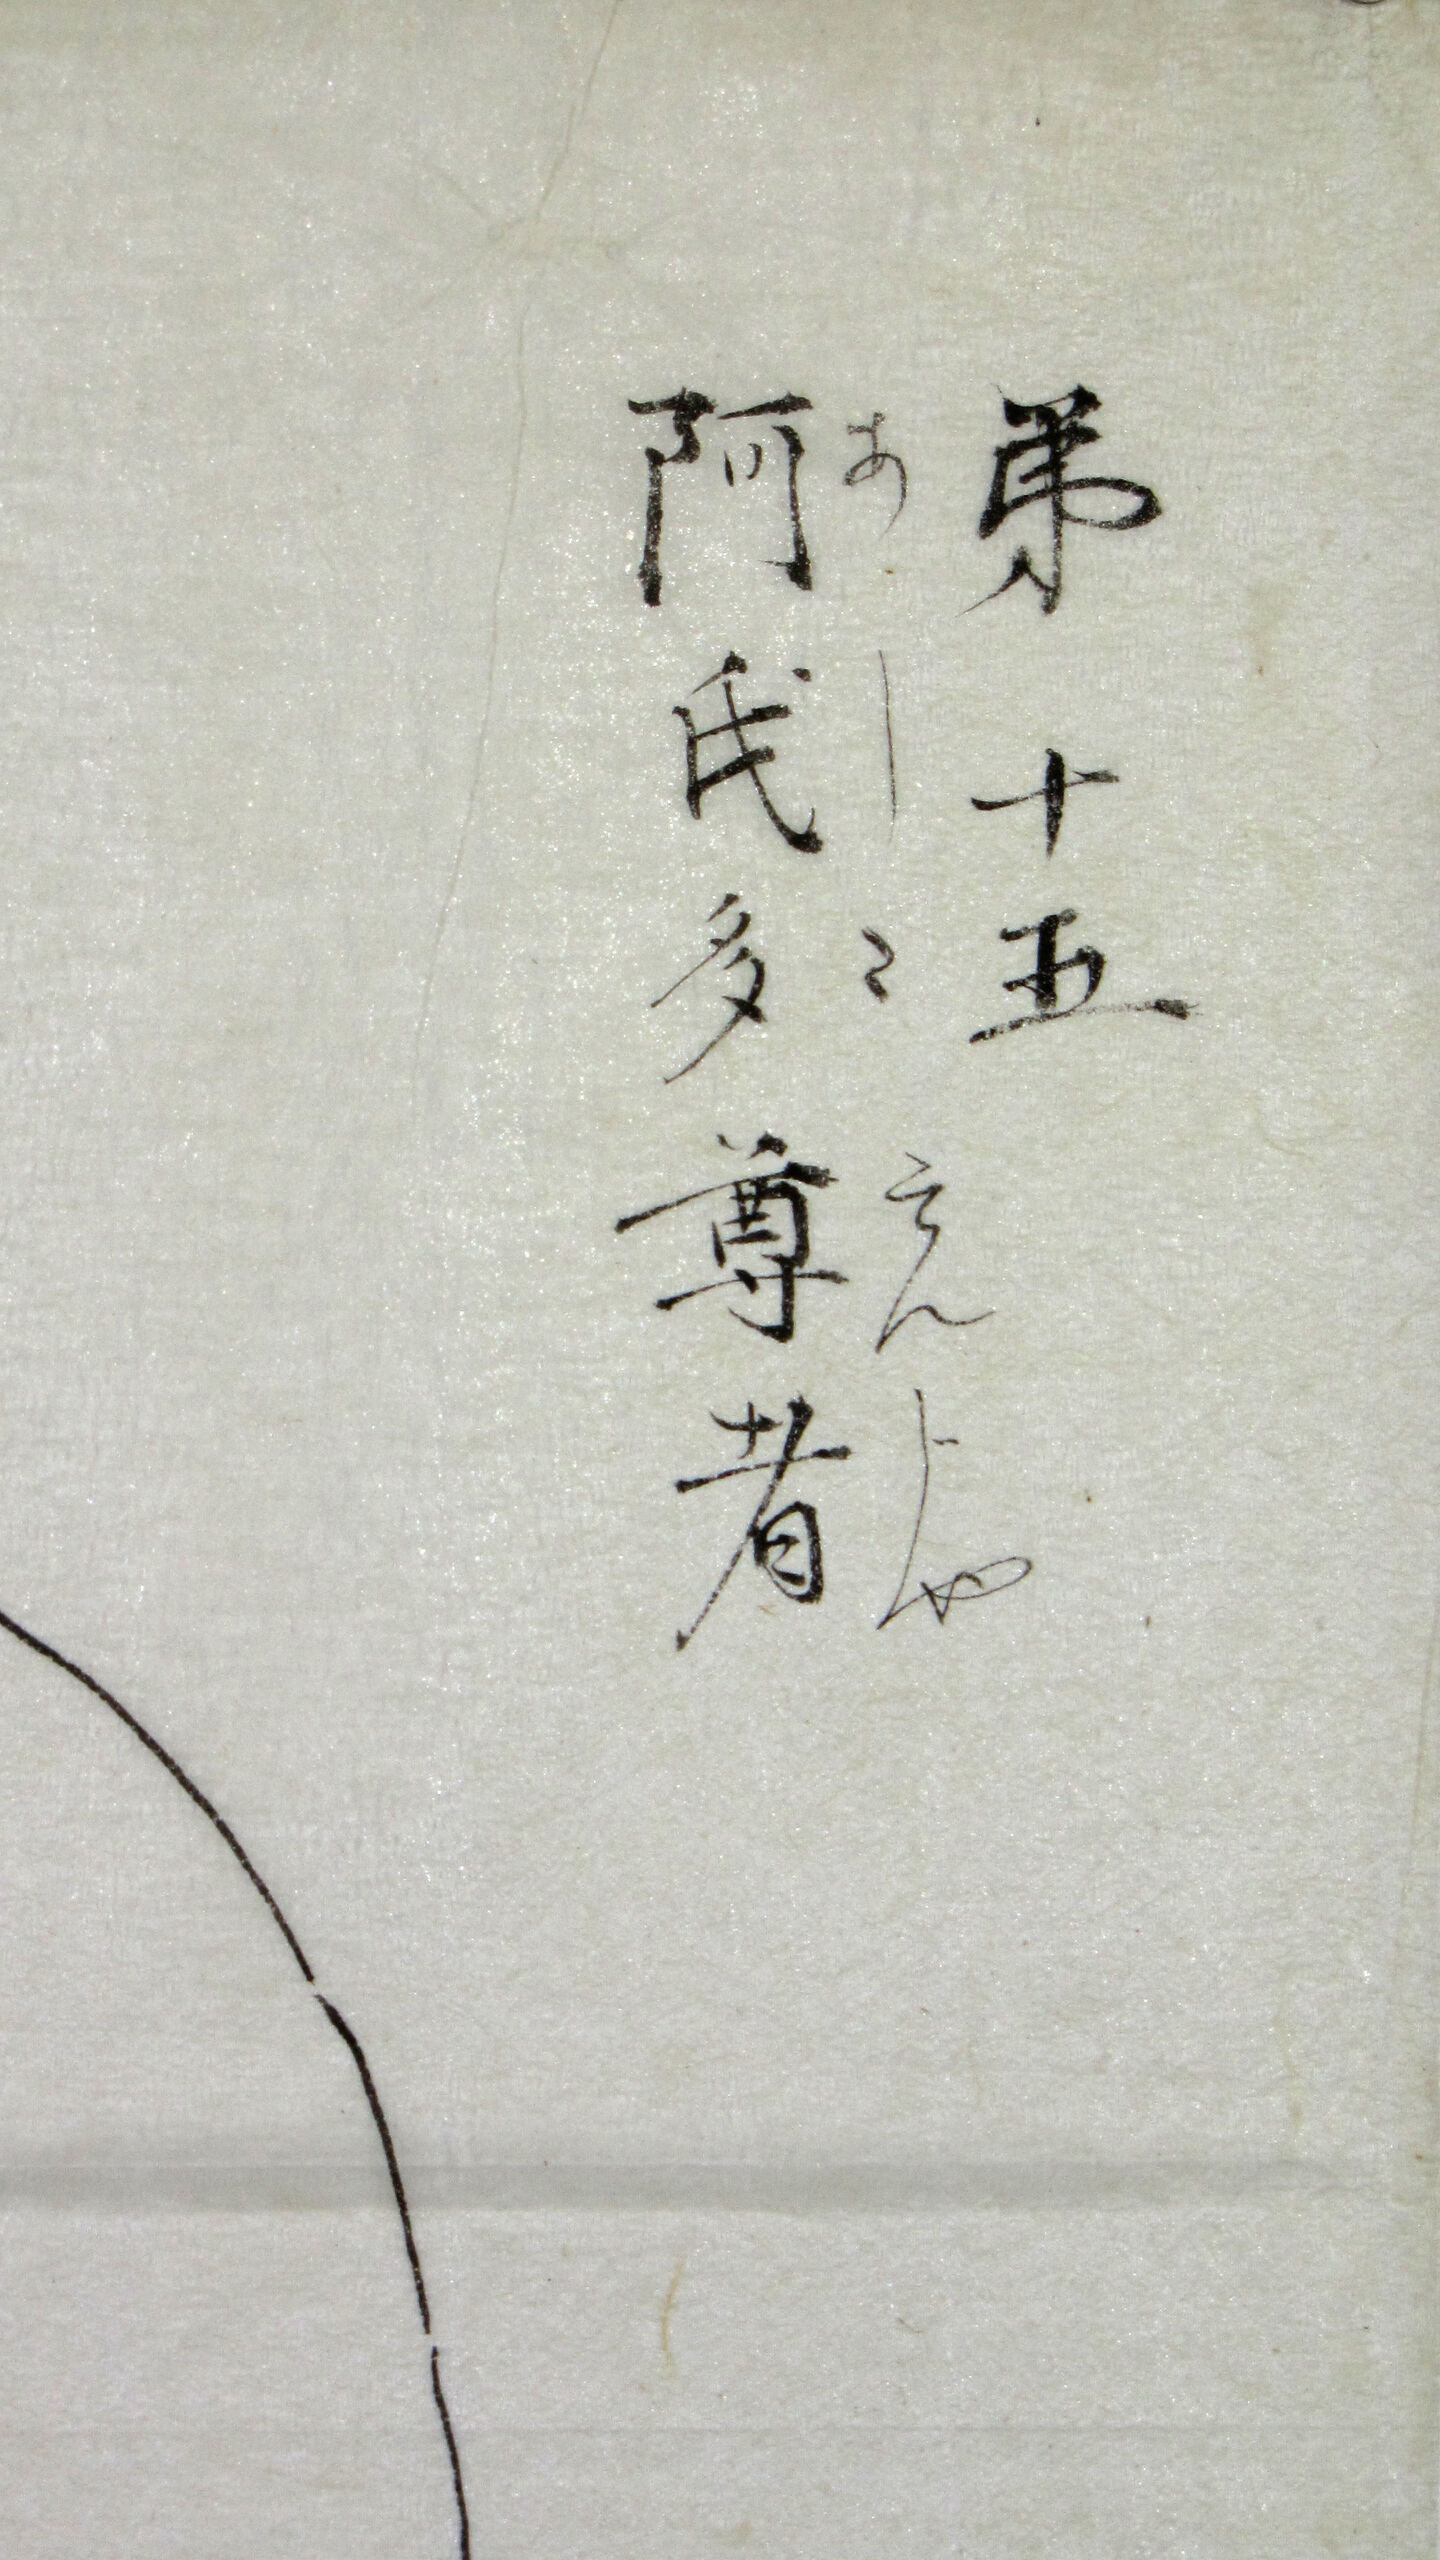 弟十五
あしたそんじゃ
阿氏多尊者